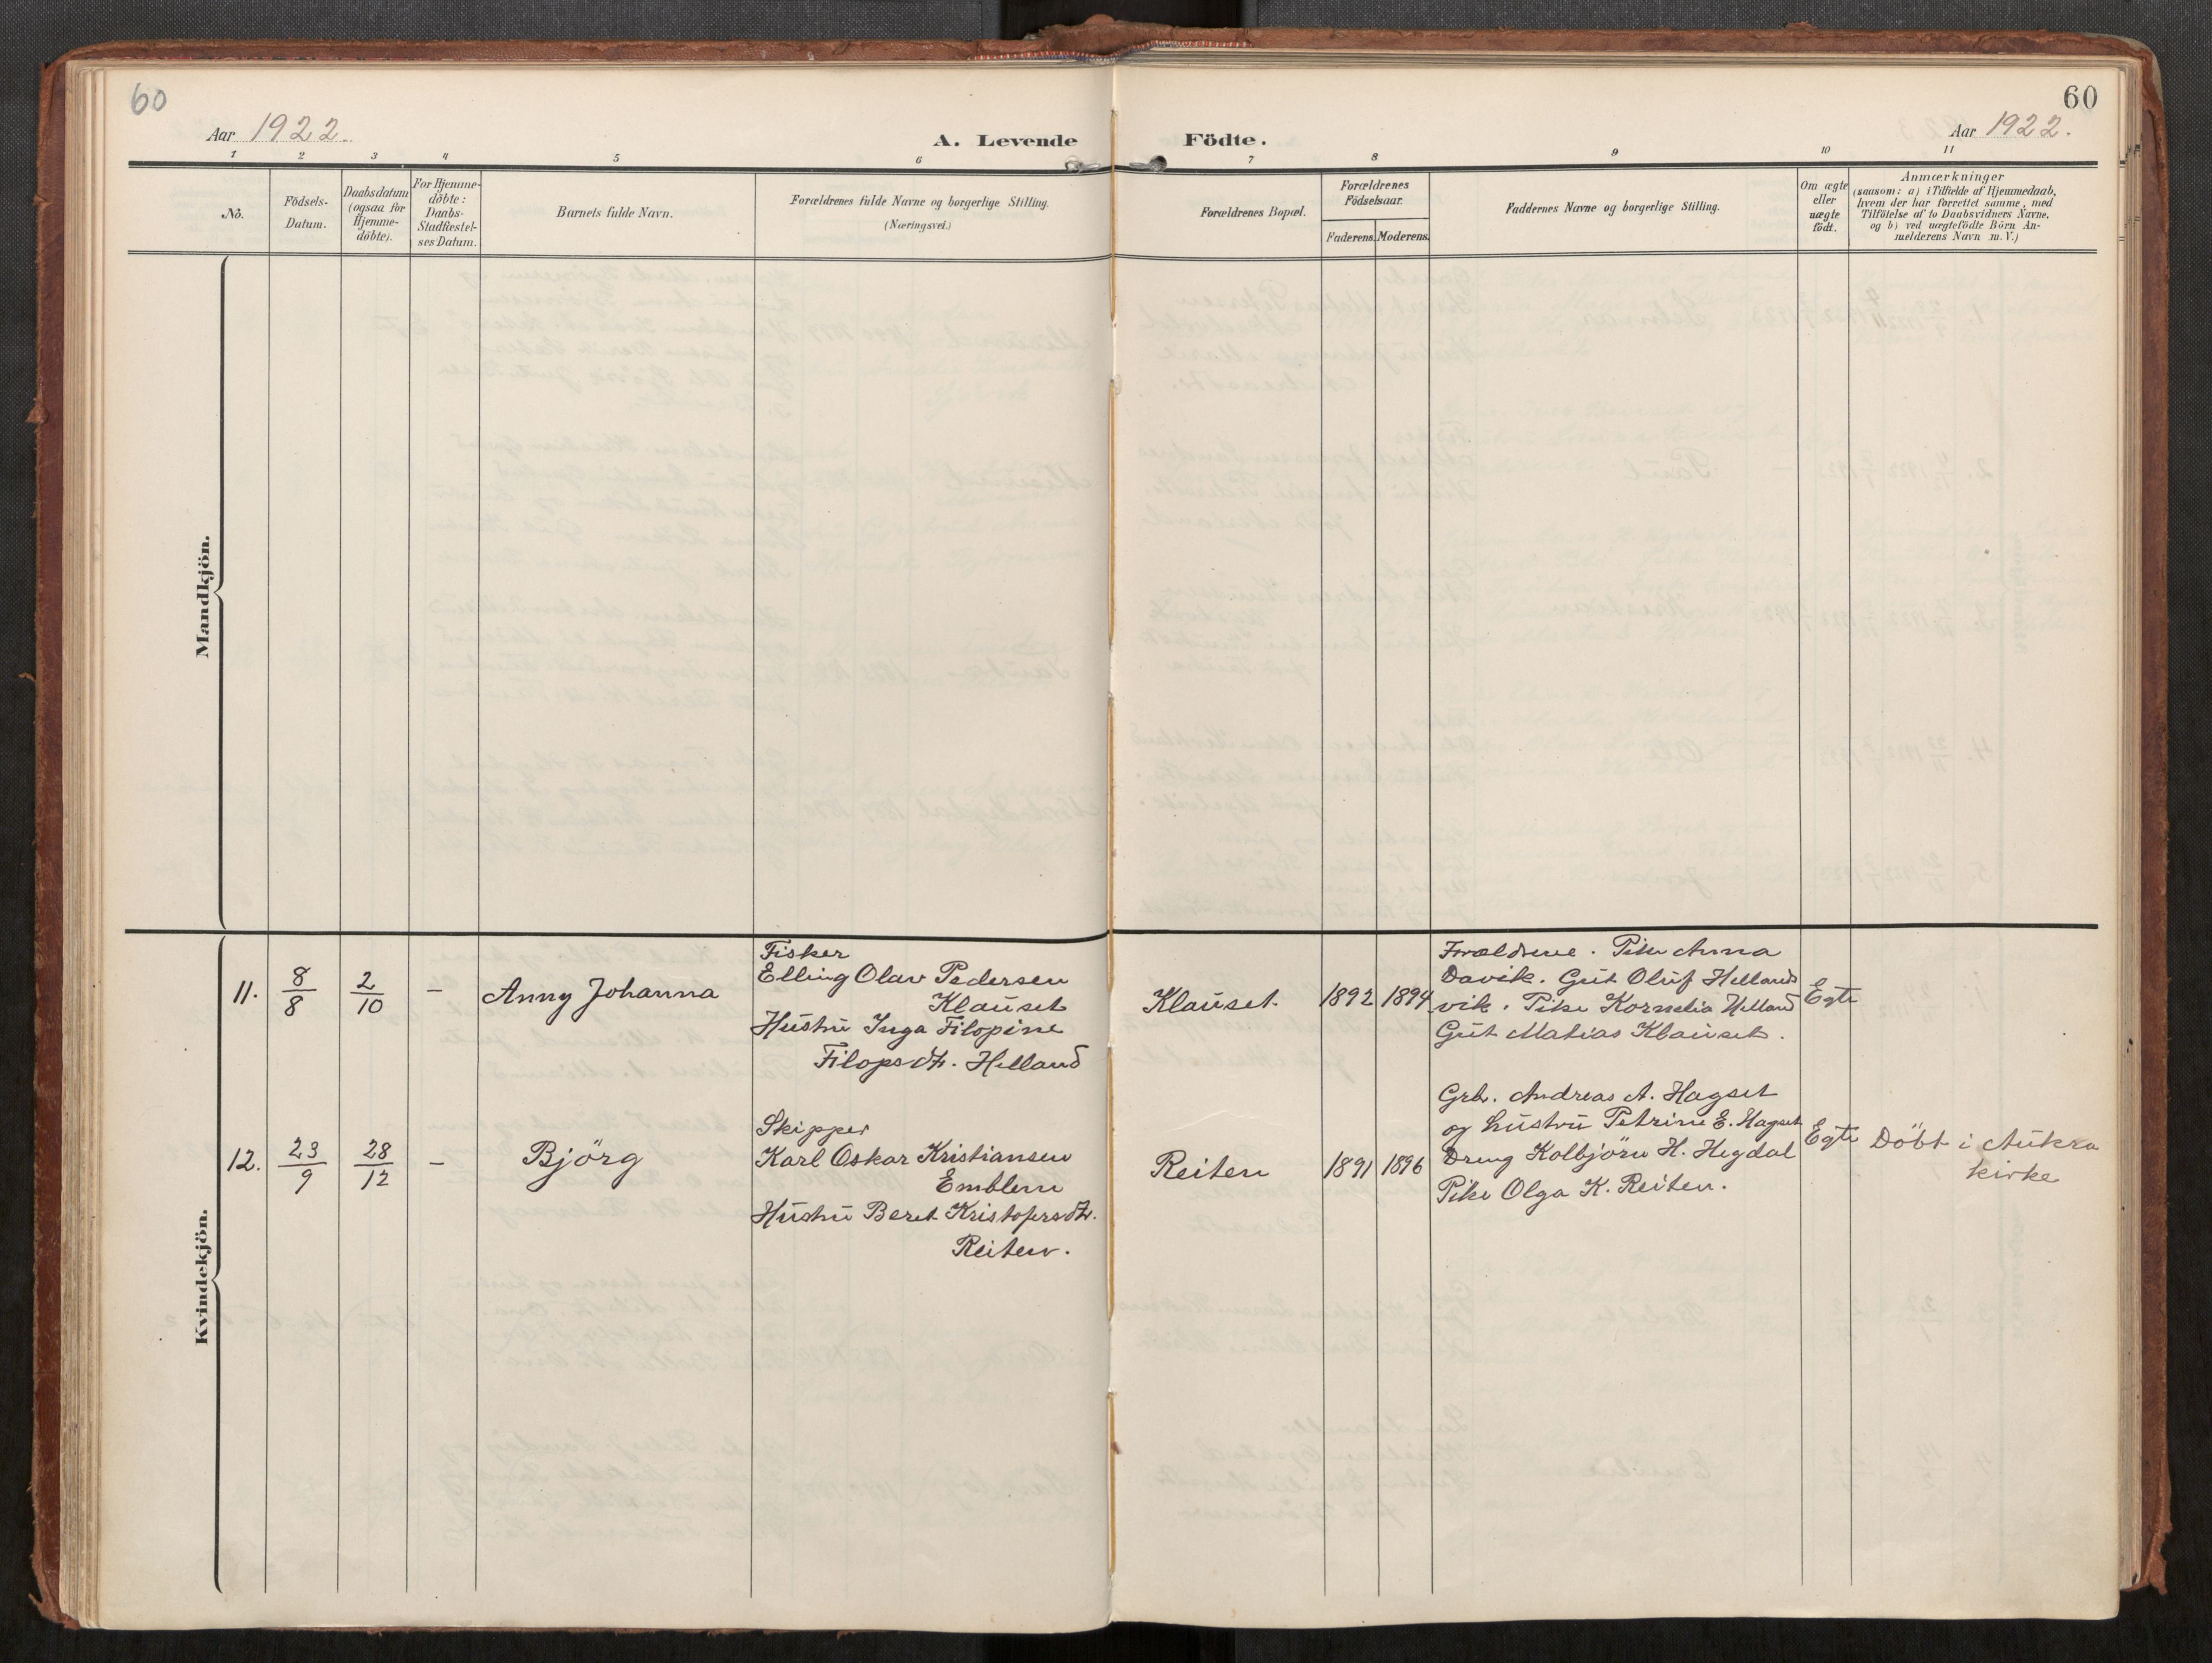 60
60
Aar 1922.
A. Levende Födte.
Aar 1922.
1 2 3 4 5 6 7 8 9 10 11
No.
Födsels-
Datum.
Daabsdatum
(ogsaa for
Hjemme-
döbte).
For Hjemme-
döbte:
Daabs-
Stadfestel-
ses Datum.
Barnets fulde Navn.
Forældrenes fulde Navne og borgerlige Stilling.
(Næringsvei.)
Forældrenes Bopæl.
Forældrenes
Födselsaar.
Faderens. Moderens.
Faddernes Navne og borgerlige Stilling.
Om ægte
eller
uægte
födt.
Anmærkninger
(saasom: a) i Tilfælde af Hjemmedaab,
hvem der har forrettet samme, med
Tilföielse af to Daabsvidners Navne,
og b) ved uægtefödte Börn An-
melderens Navn m.V.)
Mandkjön.
Kvindekjön.
11.
8/8
2/10
—
Anny Johanna
Fisker
Elling Olav Pedersen
Klauset
Hustru Inga Filopine
Filopsdtr. Helland
Klauset.
1892 1894
Forældrene. Pike Anna
Davik. Gut Oluf Hellands
vik. Pike Kornelia Helland
Gut Matias Klauset.
Egte
12.
23/9
28/12
—
Björg
Skipper
Karl Oskar Kristiansen
Emblem
Hustru Beret Kristofersdtr.
Reiten.
Reiten
1891 1896
Grb. Andreas A. Hagset
og hustru Petrine E. Hagset
Dreng Kolbjörn H. Hegdal
Pike Olga K. Reiten.
Egte
Döbt i Aukra
kirke